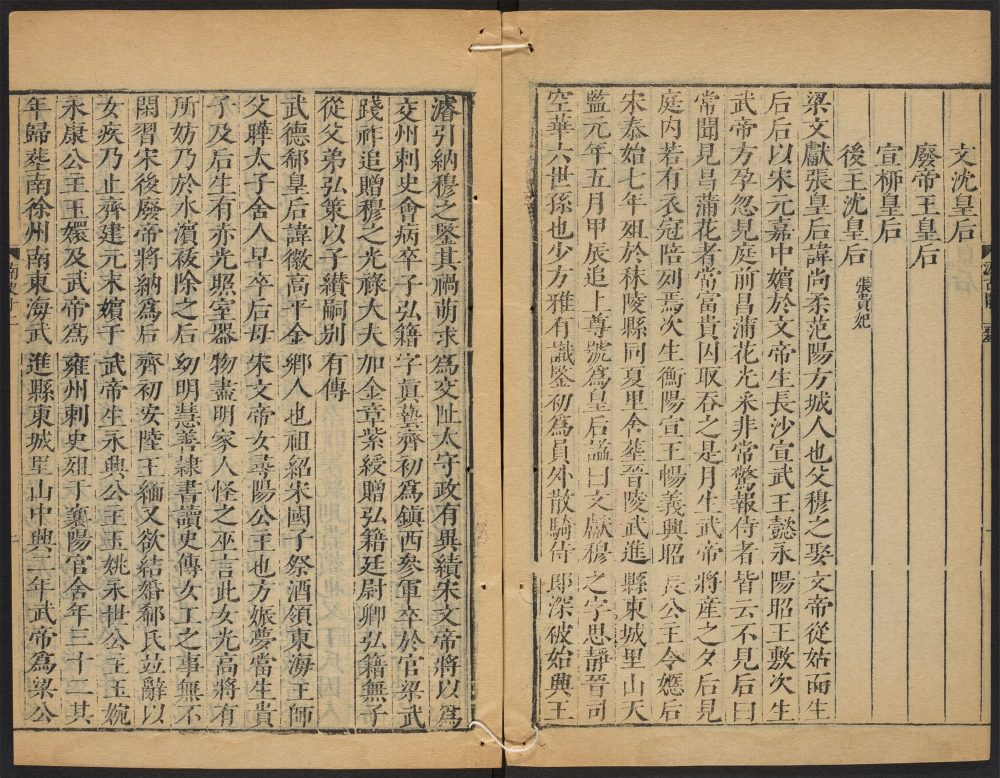 文沈皇后
廢帝王皇后
宣柳皇后
後王沈皇后 張貴妃
梁文獻張皇后諱尚柔范陽方城人也父穆之娶文帝從姑而生
后后以宋元嘉中嬪於文帝生長沙宣武王懿永陽昭王敷次生
武帝方孕忽見庭前昌蒲花光采非常驚報侍者皆云不見后曰
常聞見昌蒲花者當富貴因取吞之是月生武帝將產之夕后見
庭內若有衣冠陪列焉次生衡陽宣王暢義興昭長公主令嫕后
宋泰始七年殂於秣陵縣同夏里舍葬晉陵武進縣東城里山天
監元年五月甲辰追上尊號為皇后謚曰文獻穆之字思靜晉司
空華六世孫也少方雅有識鑒初為員外散騎侍郎深破始興王
濬引納穆之鑒其禍萌求為交阯太守政有異績宋文帝將以為
交州刺史會病卒子弘籍字真藝齊初為鎮西參軍卒於官梁武
踐祚追贈穆之光祿大夫加金章紫綬贈弘籍廷尉卿弘籍無子
從父弟弘策以子纘嗣別有傳
武德郗皇后諱徽高平金鄉人也祖紹宋國子祭酒領東海王師
父曄太子舍人早卒后母宋文帝女尋陽公主也方娠夢當生貴
子及后生有赤光照室器物盡明家人怪之巫言此女光高將有
所妨乃於水濱祓除之后幼明慧善隸書讀史傳女工之事無不
閑習宋後廢帝將納為后齊初安陸王緬又欲結婚郗氏並辭以
女疾乃止齊建元末嬪于武帝生永興公主玉姚永世公主玉婉
永康公主玉嬛及武帝為雍州刺史殂于襄陽官舍年三十二其
年歸葬南徐州南東海武進縣東城里山中興二年武帝為梁公